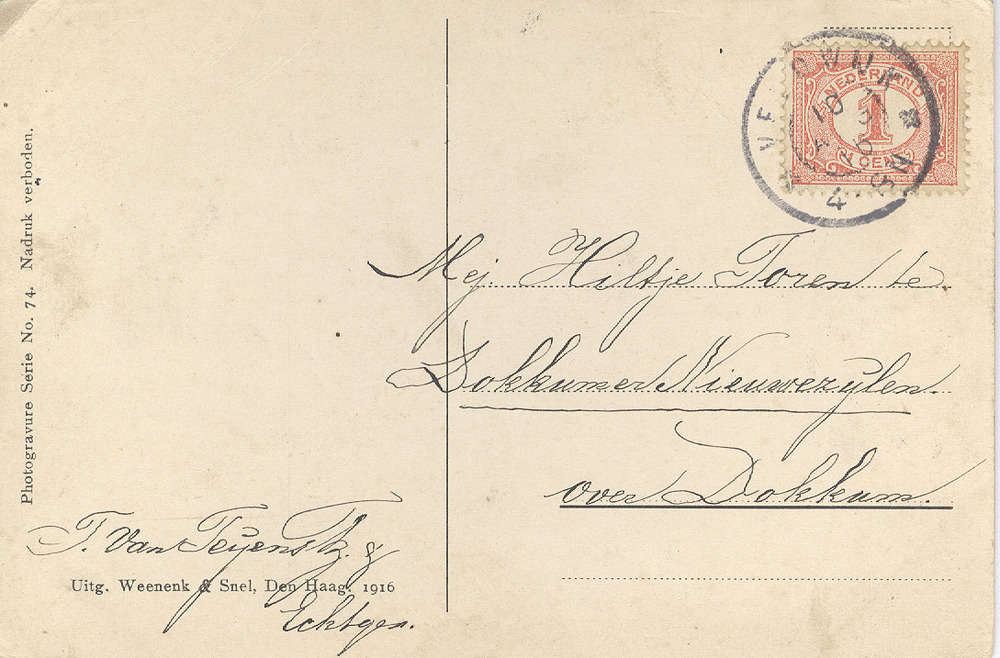 Photogravure Serie No. 74. Nadruk verboden.
NEDERLAND
1
CENT
4
Mej. Hiltje Toren te
Dokkumer Nieuwezylen.
over Dokkum.
T. Van
&
Echtgen.
Uitg. Weenenk & Snel, Den Haag. 1916